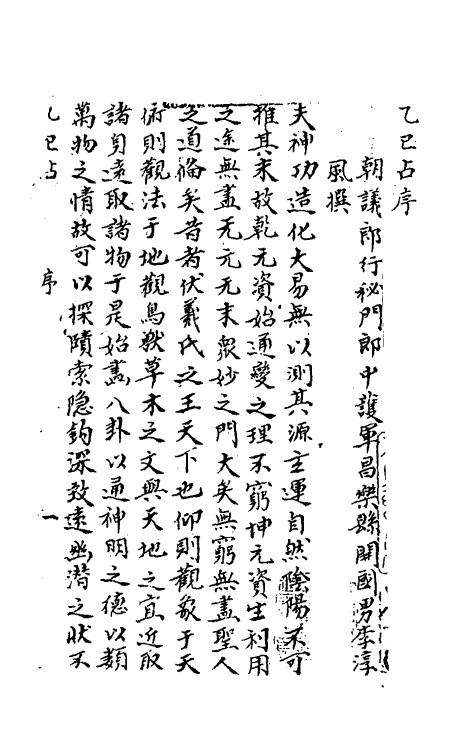 乙巳占序
朝議郎行秘門郎中護軍昌樂縣開國男李淳
風撰
夫神功造化大易無以測其源主運自然陰陽不可
推其末故乾元資始通變之理不窮坤元資生利用
之途無盡无元无末眾妙之門大矣無窮無盡聖人
之道偹矣昔者伏羲氏之王天下也仰則觀象于天
俯則觀法于地觀鳥獸草木之文與天地之宜近取
諸身遠取諸物于是始畫八卦以通神明之德以類
萬物之情故可以探賾索隱鈎深致遠幽潛之狀不
乙巳占 序 一